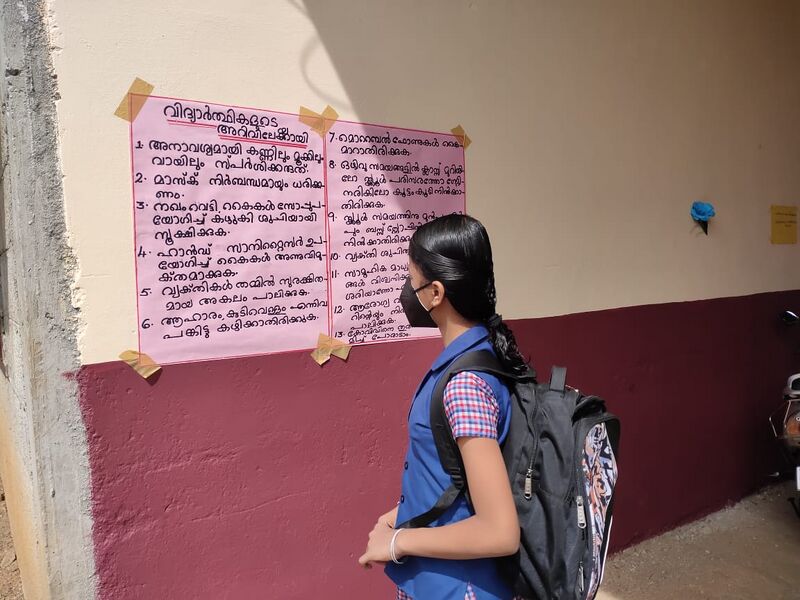 വിദ്യാർത്ഥികളുടെ
അറിവിലേക്കായി
1. അനാവശ്യമായി കണ്ണിലും മൂക്കിലും
വായിലും സ്പർശിക്കരുത്.
2. മാസ്ക് നിർബന്ധമായും ധരിക്ക-
ണം.
3. നഖം വെട്ടി, കൈകൾ സോപ്പുപ-
യോഗിച്ച് കഴുകി ശുചിയായി
സൂക്ഷിക്കുക.
4. ഹാൻഡ് സാനിറ്റൈസർ ഉപ-
യോഗിച്ച് കൈകൾ അണുവിമു-
ക്തമാക്കുക.
5. വ്യക്തികൾ തമ്മിൽ സുരക്ഷിത-
മായ അകലം പാലിക്കുക.
6. ആഹാരം, കുടിവെള്ളം എന്നിവ
പങ്കിട്ടു കഴിക്കാതിരിക്കുക.
7. മൊബൈൽ ഫോണുകൾ കൈ-
മാറാതിരിക്കുക.
8. ഒഴിവു സമയങ്ങളിൽ ക്ലാസ്സ് മുറിയി-
ലോ സ്കൂൾ പരിസരത്തോ
കൂട്ടം കൂടി നിൽക്കാ-
തിരിക്കുക.
9. സ്കൂൾ സമയത്തിനു മുൻ
പും ബസ്സ്
നിൽക്കാതിരിക്കു
10. വ്യക്തി ശുചി
11. സാമൂഹിക
12. ആരോഗ്യ
പാലിക്കുക.
13. കോവിഡിനെ